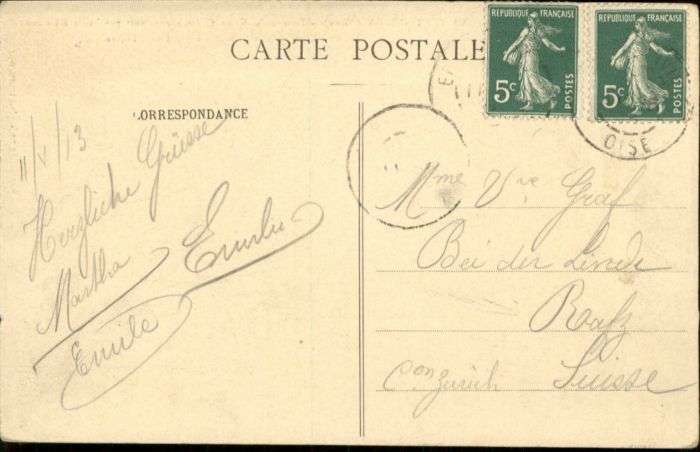 CARTE POSTALE
REPUBLIQUE FRANÇAISE
5c
POSTES
REPUBLIQUE FRANÇAISE
5c
POSTES
OISE
CORRESPONDANCE
11/V/13
Herzliche Grüsse
Martha
Emilie
Emile
Mme Vve Graf
Bei der Linde
Rafz
Con Zürich Suisse